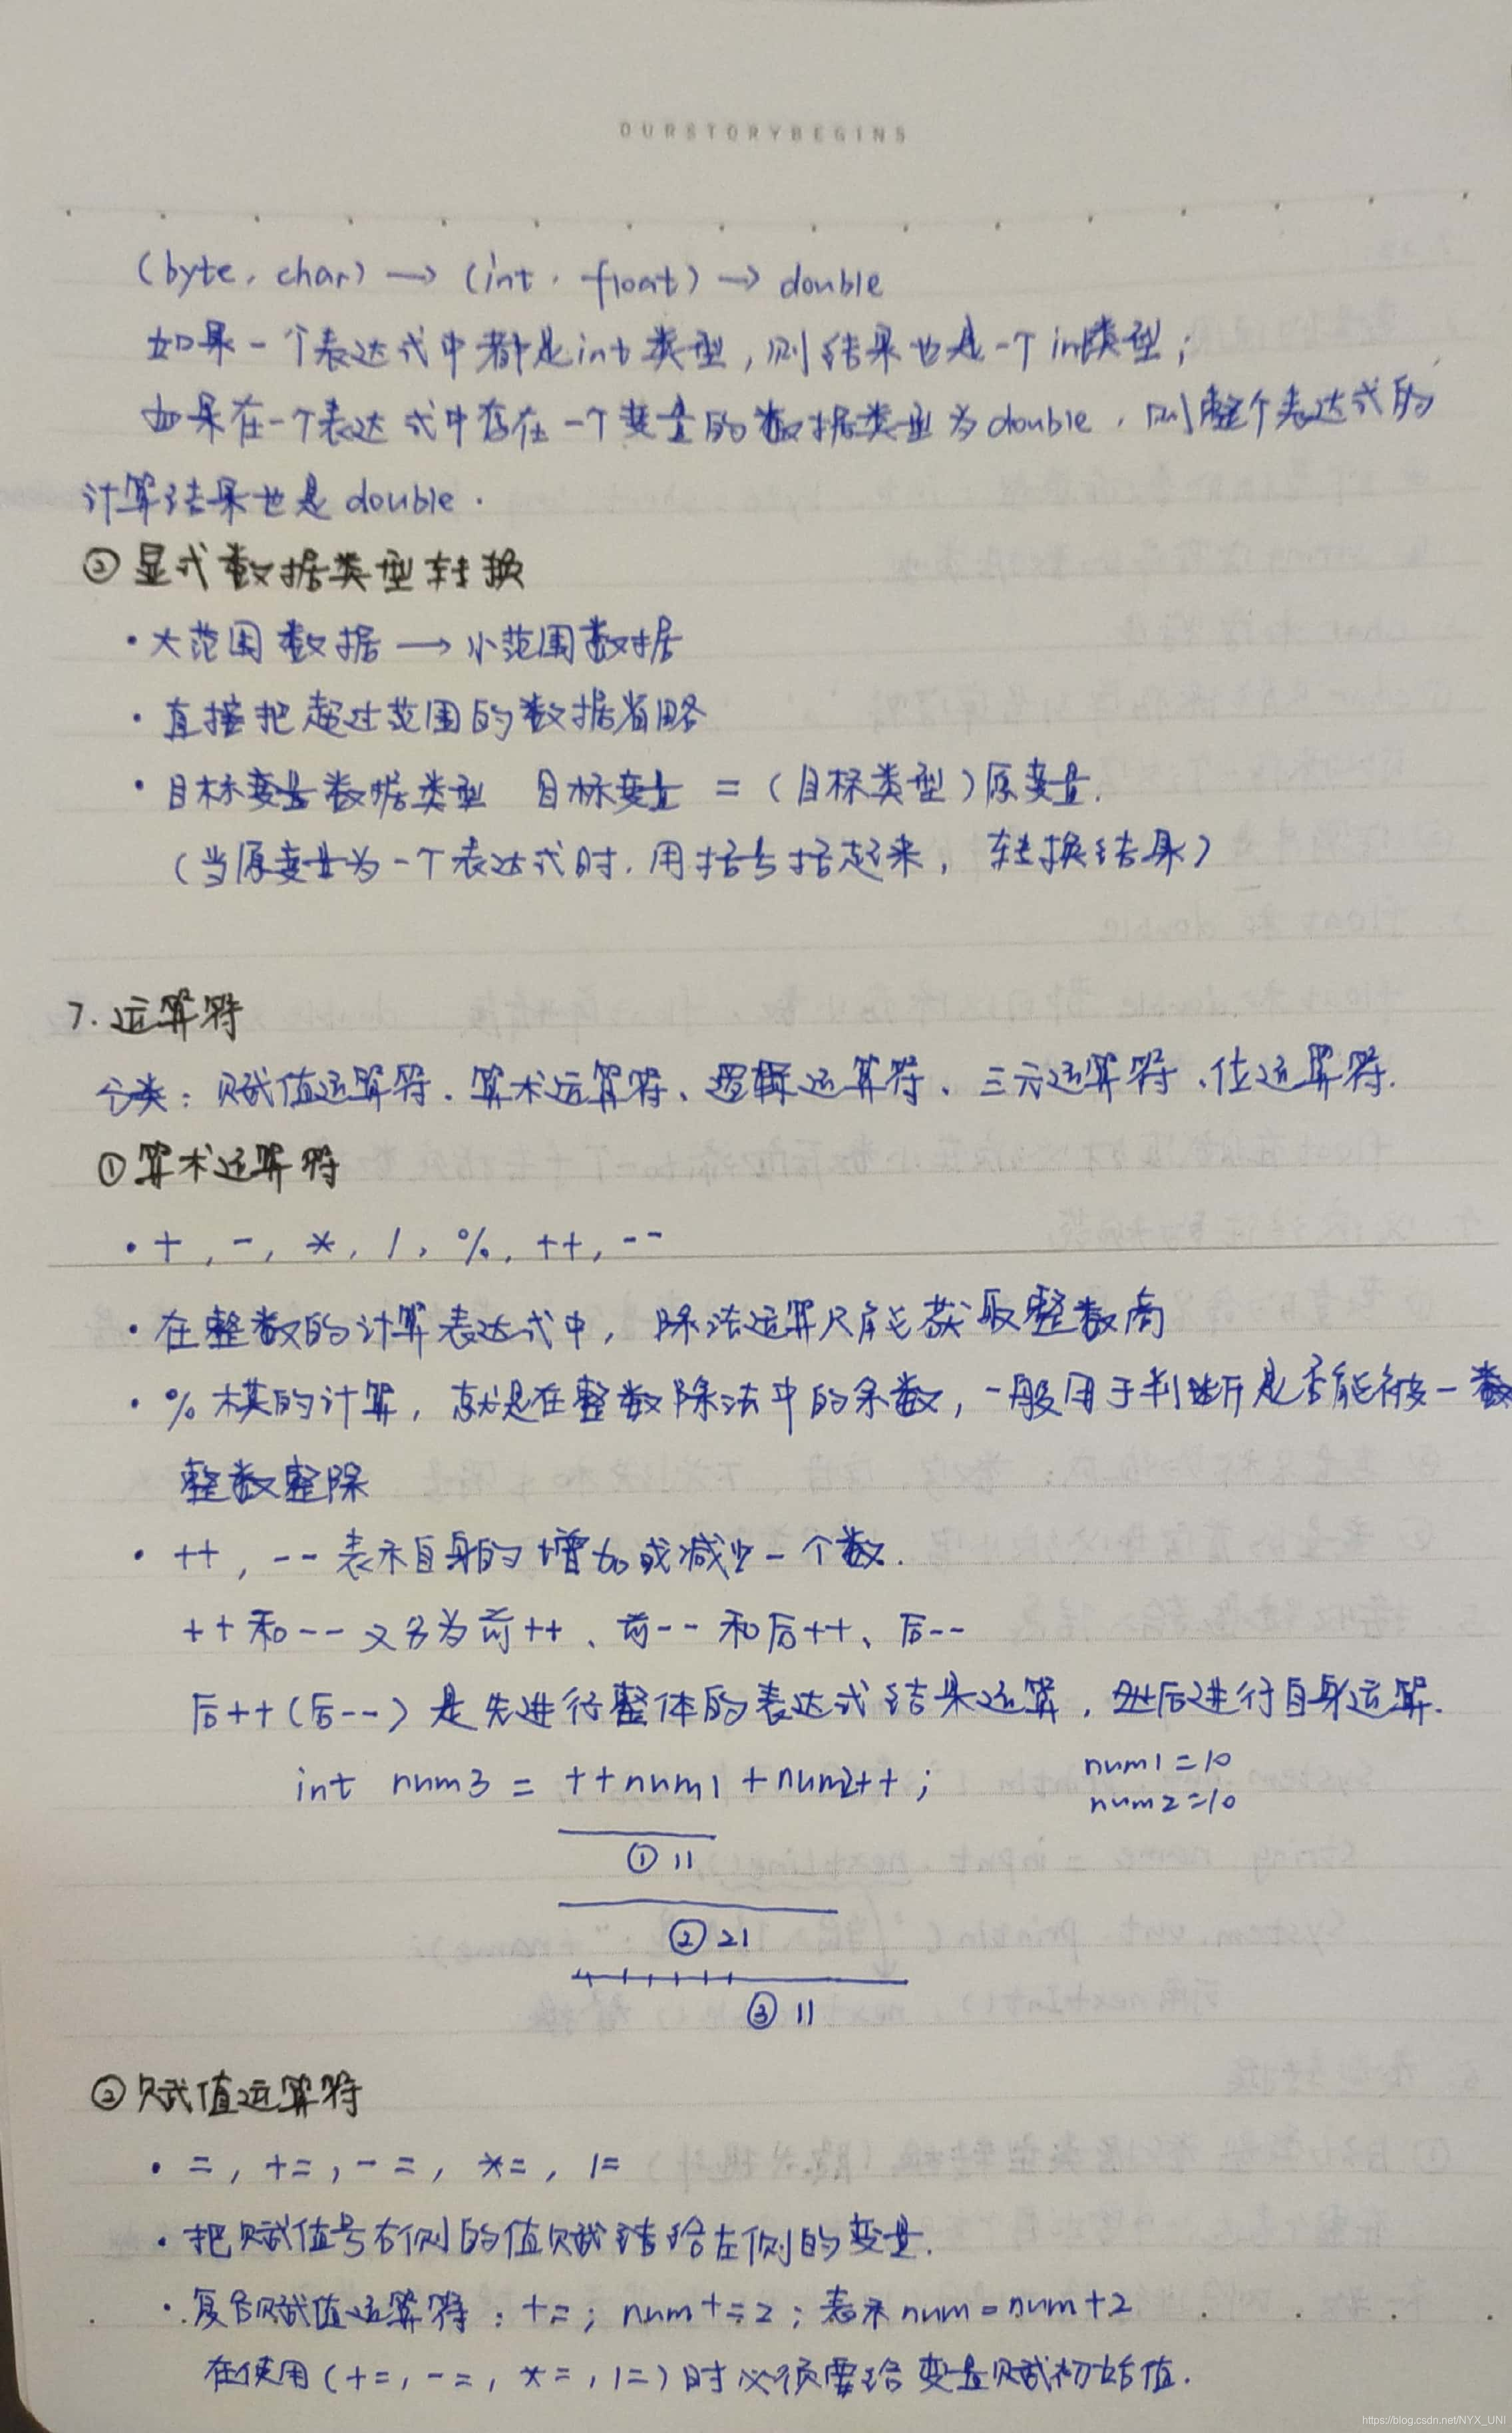 OURSTORYBEGINS
(byte, char) → (int, float) → double
如果一个表达式中都是int类型,则结果也是一个int类型;
如果在一个表达式中存在一个变量的数据类型为double,则整个表达式的
计算结果也是double.
② 显式数据类型转换
· 大范围数据 → 小范围数据
· 直接把超过范围的数据省略
· 目标变量数据类型 目标变量 = (目标类型)原变量.
(当原变量为一个表达式时,用括号括起来,转换结果)
7. 运算符
分类:赋值运算符、算术运算符、逻辑运算符、三元运算符、位运算符.
① 算术运算符
· +, -, *, /, %, ++, --
· 在整数的计算表达式中,除法运算只能获取整数商
· % 模的计算,就是在整数除法中的余数,一般用于判断是否能被一数
整数整除
· ++, -- 表示自身的增加或减少一个数.
++和-- 又名为前++、前--和后++、后--
后++(后--)是先进行整体的表达式结果运算,然后进行自身运算.
int num3 = ++num1 + num2++; num1=10
num2=10
① 11
② 21
③ 11
② 赋值运算符
· =, +=, -=, *=, /=
· 把赋值号右侧的值赋给左侧的变量.
· 复合赋值运算符: +=; num+=2; 表示 num=num+2
在使用(+=, -=, *=, /=)时必须要给变量赋初始值.
https://blog.csdn.net/NYX_UNI